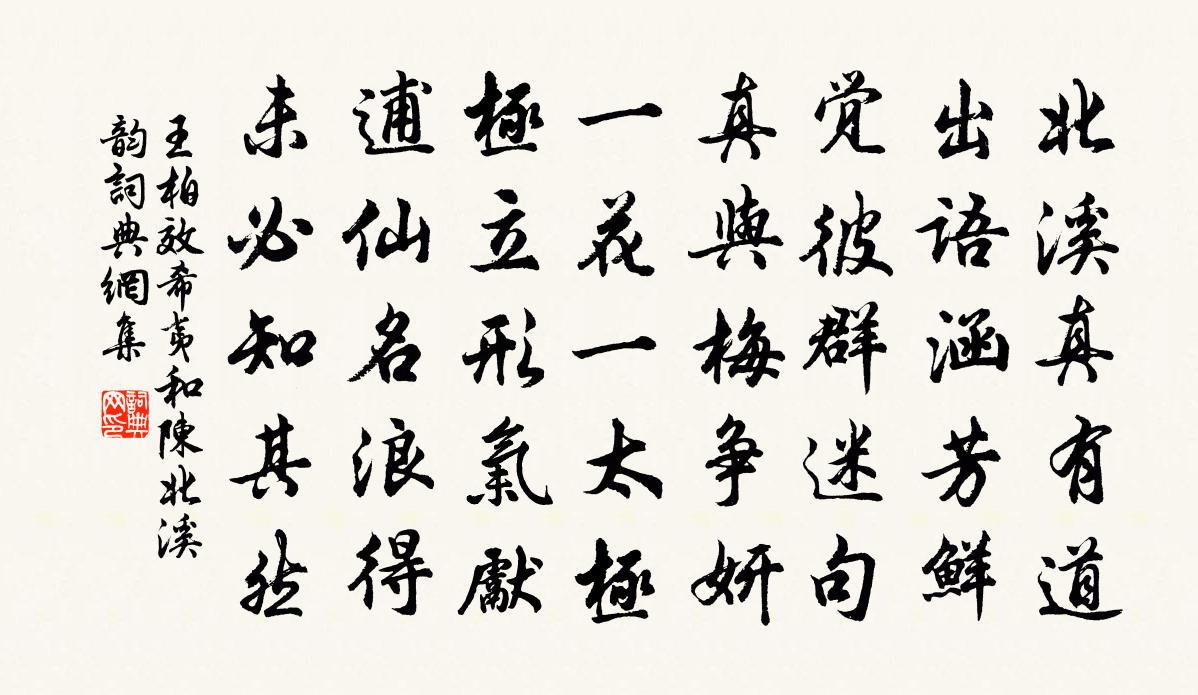 北溪真有道
出語涵芳鮮
覚彼群迷句
真與梅争妍
一花一太極
極立形氣獻
逋仙名浪得
未必知其然
王柏效希夷和陳北溪
韵詞典網集
詞典网印